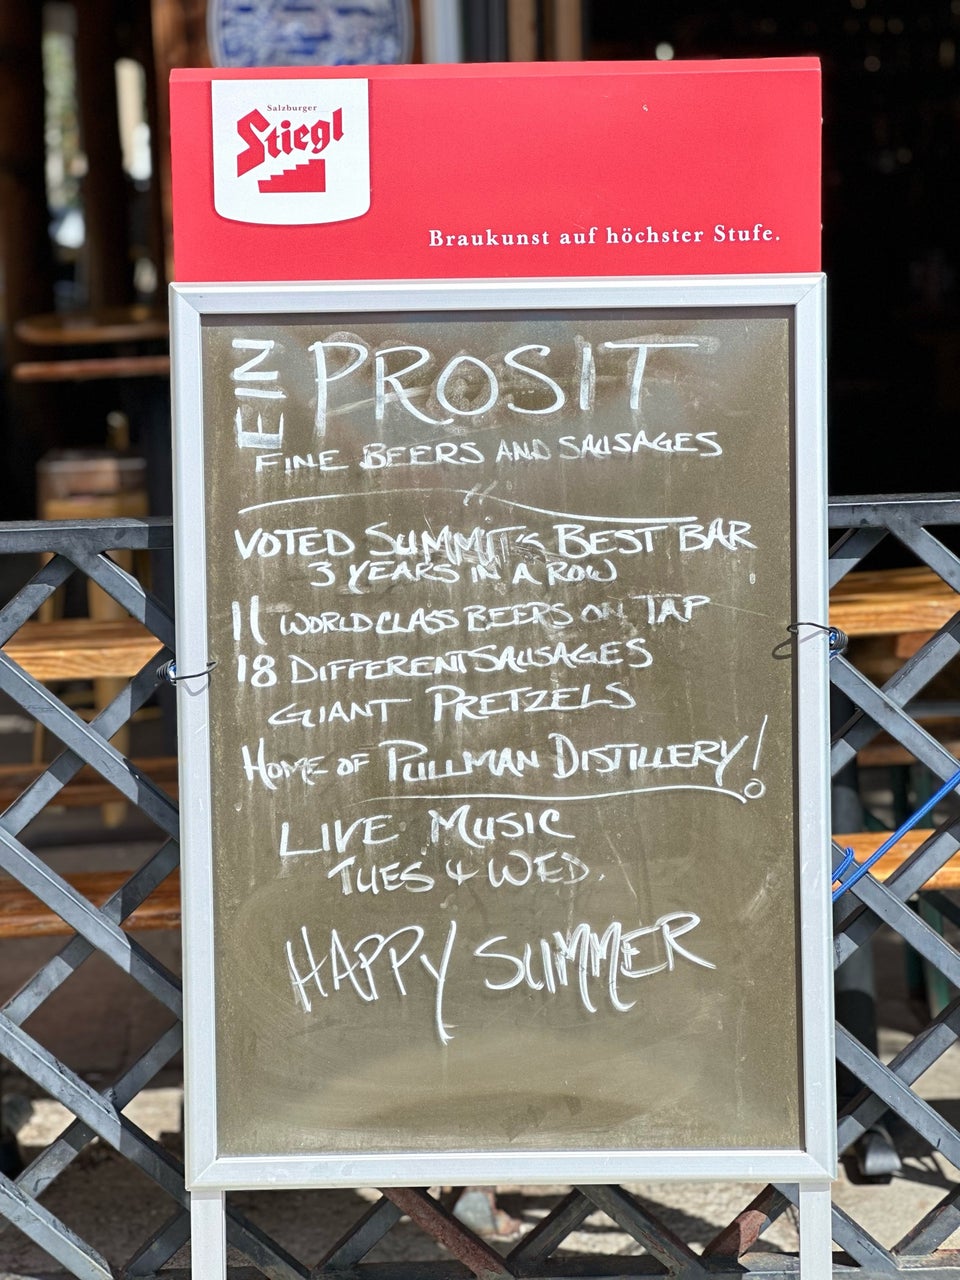 Salzburger
Stiegl
Braukunst auf höchster Stufe.
EIN PROSIT
FINE BEERS AND SAUSAGES
VOTED SUMMIT'S BEST BAR
3 YEARS IN A ROW
11 WORLD CLASS BEERS ON TAP
18 DIFFERENT SAUSAGES
GIANT PRETZELS
HOME OF PULLMAN DISTILLERY!
LIVE MUSIC
TUES & WED.
HAPPY SUMMER